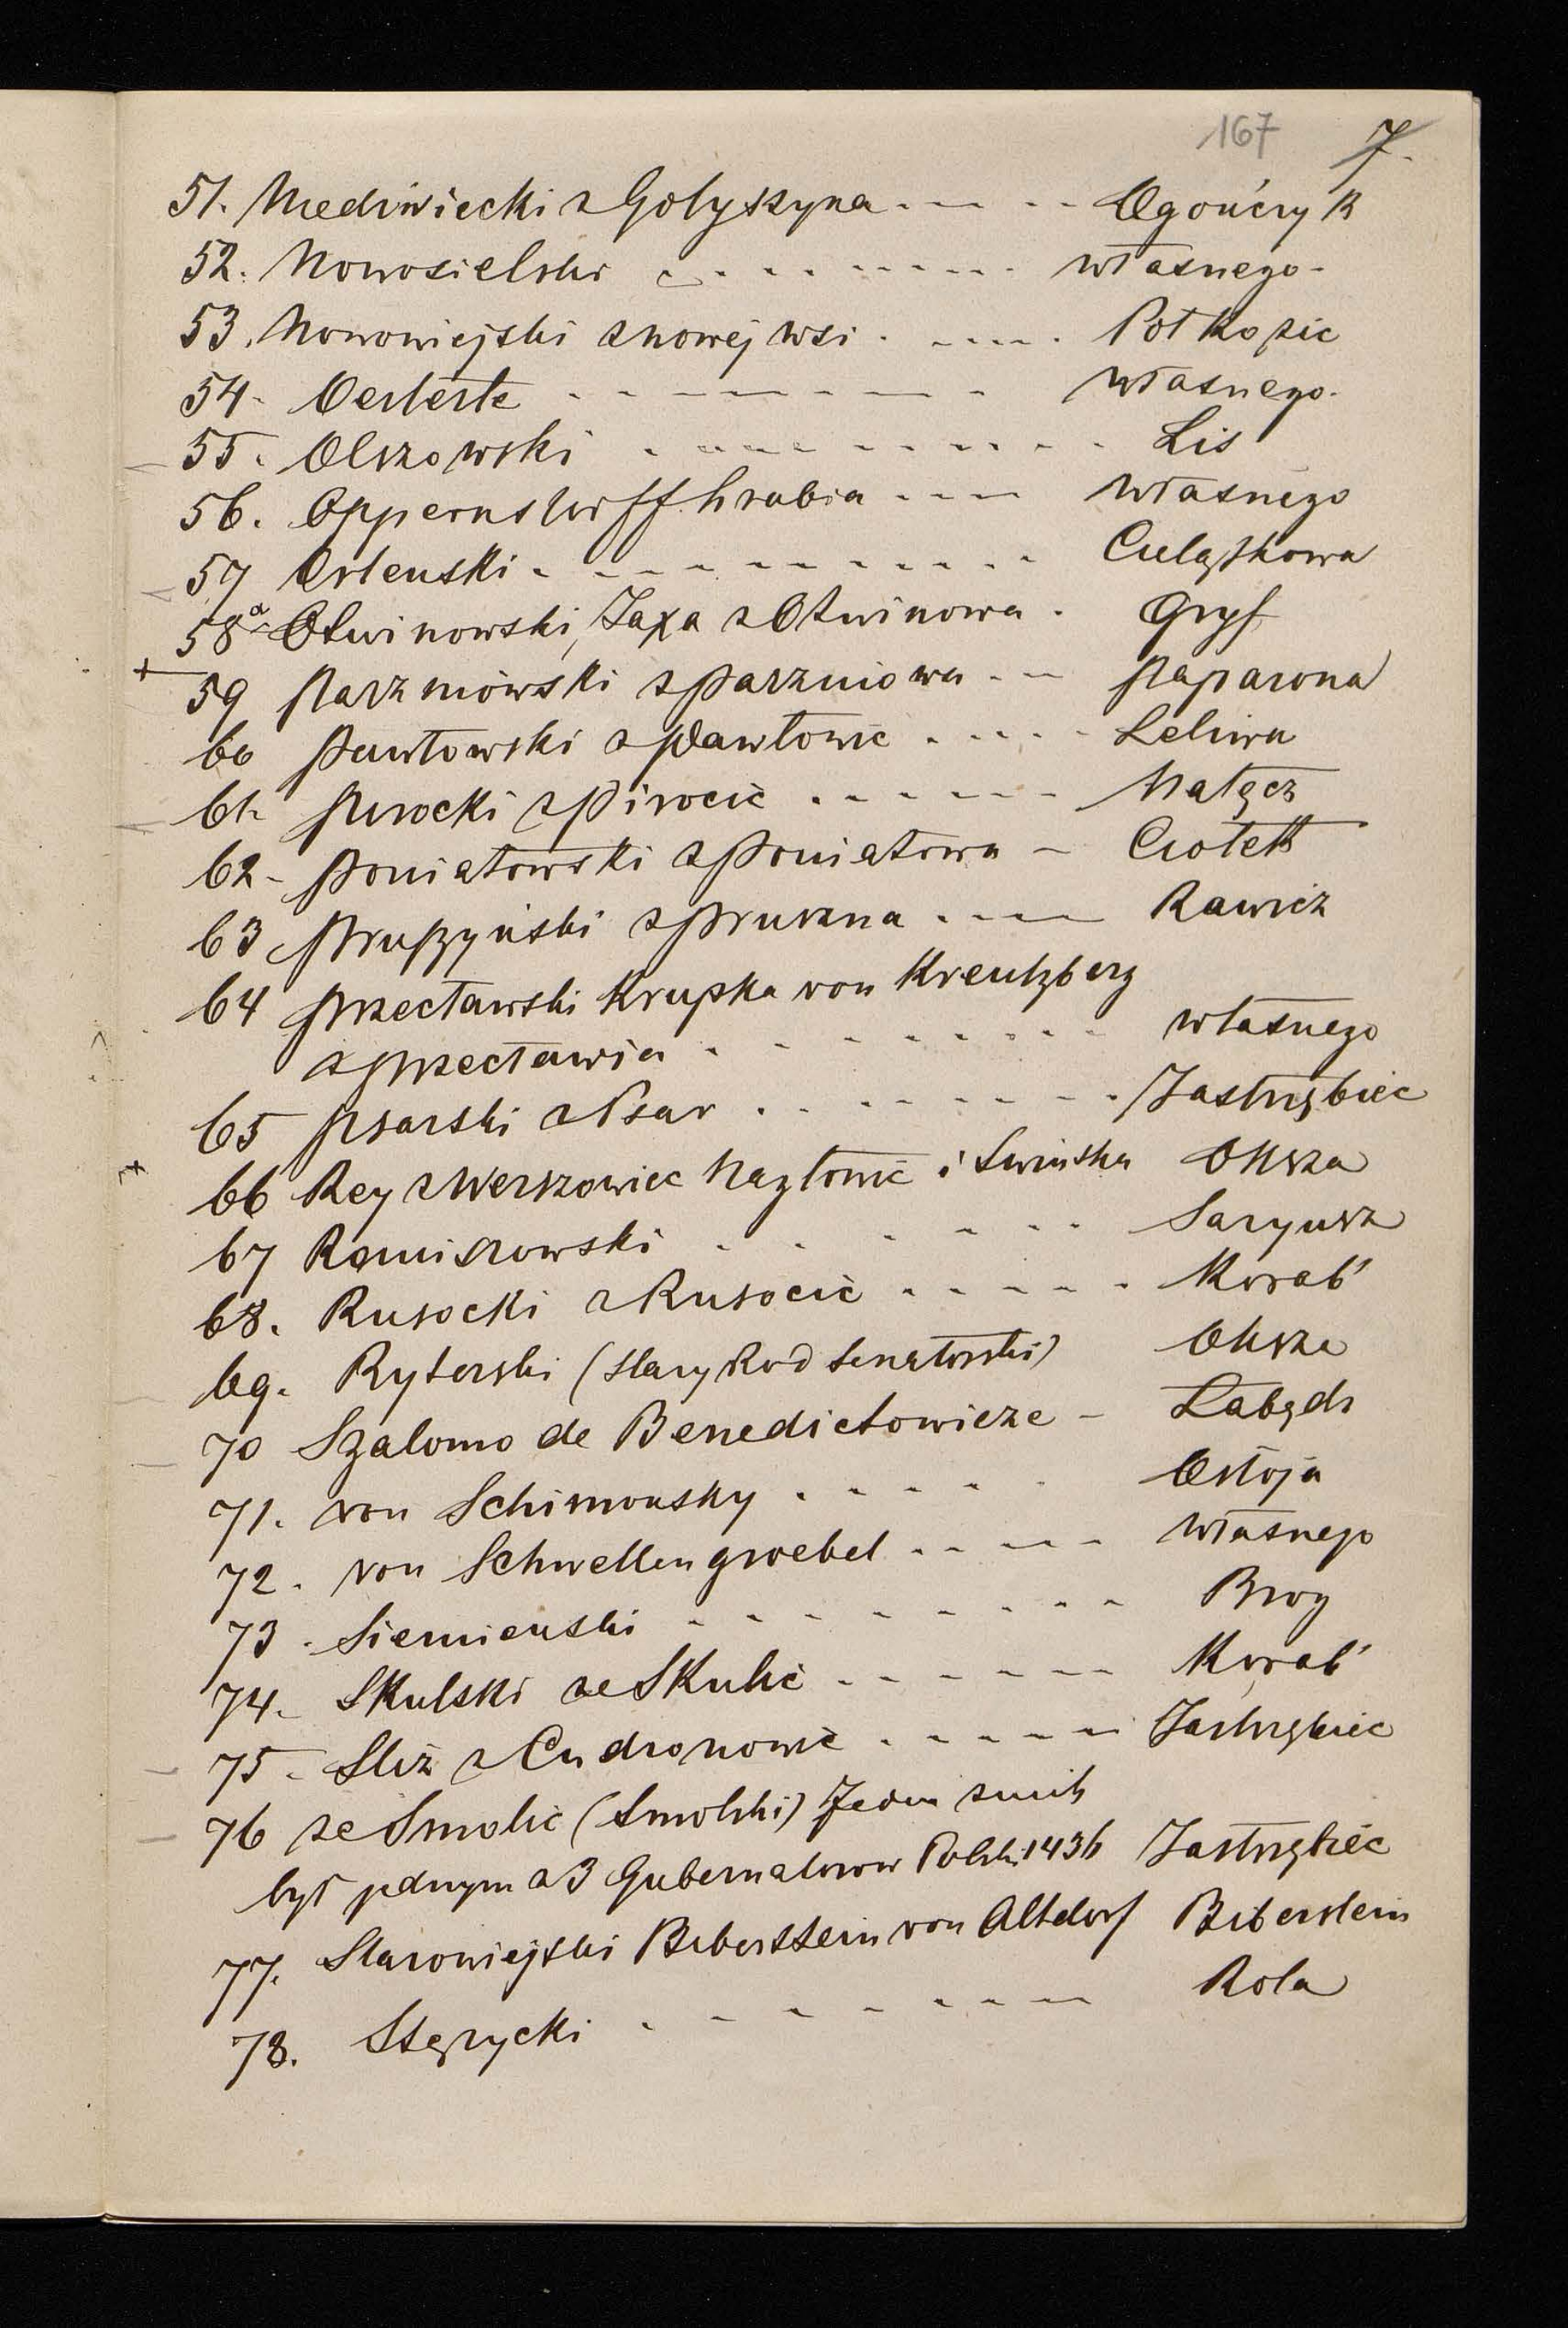 167 7.
51. Niedźwiecki z Gołyszyna . - - - - Ogończyk
52. Nowosielski . - - - - - - - własnego -
53. Nowowiejski z nowej wsi . - - - - . Pół Kozic
54. Oerterte - - - - - - - własnego.
55. Olszowski - - - - - - - - - Lis
56. Oppernsdorff hrabia - - - - własnego
57 Orlenski - - - - - - - - - Cielątkowa
58a Otwinowski, Jaxa z Otwinowa . Gryf
59 Parzniowski z Parzniowa - - - Paparona
60 Pawłowski z Pawłowic . - - - - Leliwa
61. Pirocki z Pirocic . - - - - - Nałęcz
62 - Poniatowski z Poniatowa - Ciołek
63 Pruszyński z Pruszna . - - - Rawicz
64 Przecławski Krupka von Kreutzberg
z Przecławia . - - - - - - - własnego
65 Psarski z Psar . - - - - - - . Jastrzębiec
66 Rey z Werszowiec Nagłowic i Świńska Oksza
67 Remiszowski - - - - - Saryusz
68. Rusocki z Rusocic - - - - - Korab'
69. Ryterski (stary Ród Senatorski) Oksza
70 Szalomo de Benedictowicze - Łabędź
71. von Schimonsky . - - - - Ostoja
72. von Schwellengroebel - - - - - własnego
73 . Siemieński - - - - - - - - Brog
74. Skulski ze Skulic - - - - - - Korab'
75 - Śliż z Cudronowic . - - - - - Jastrzębiec
76 ze Smolic (Smolski) Jeden z nich
był jednym z 3 Gubernatorow Polski 1436 Jastrzębiec
77. Starowiejski Biberstein von Altdorf Biberstein
78. Stęzycki - - - - - - - Rola